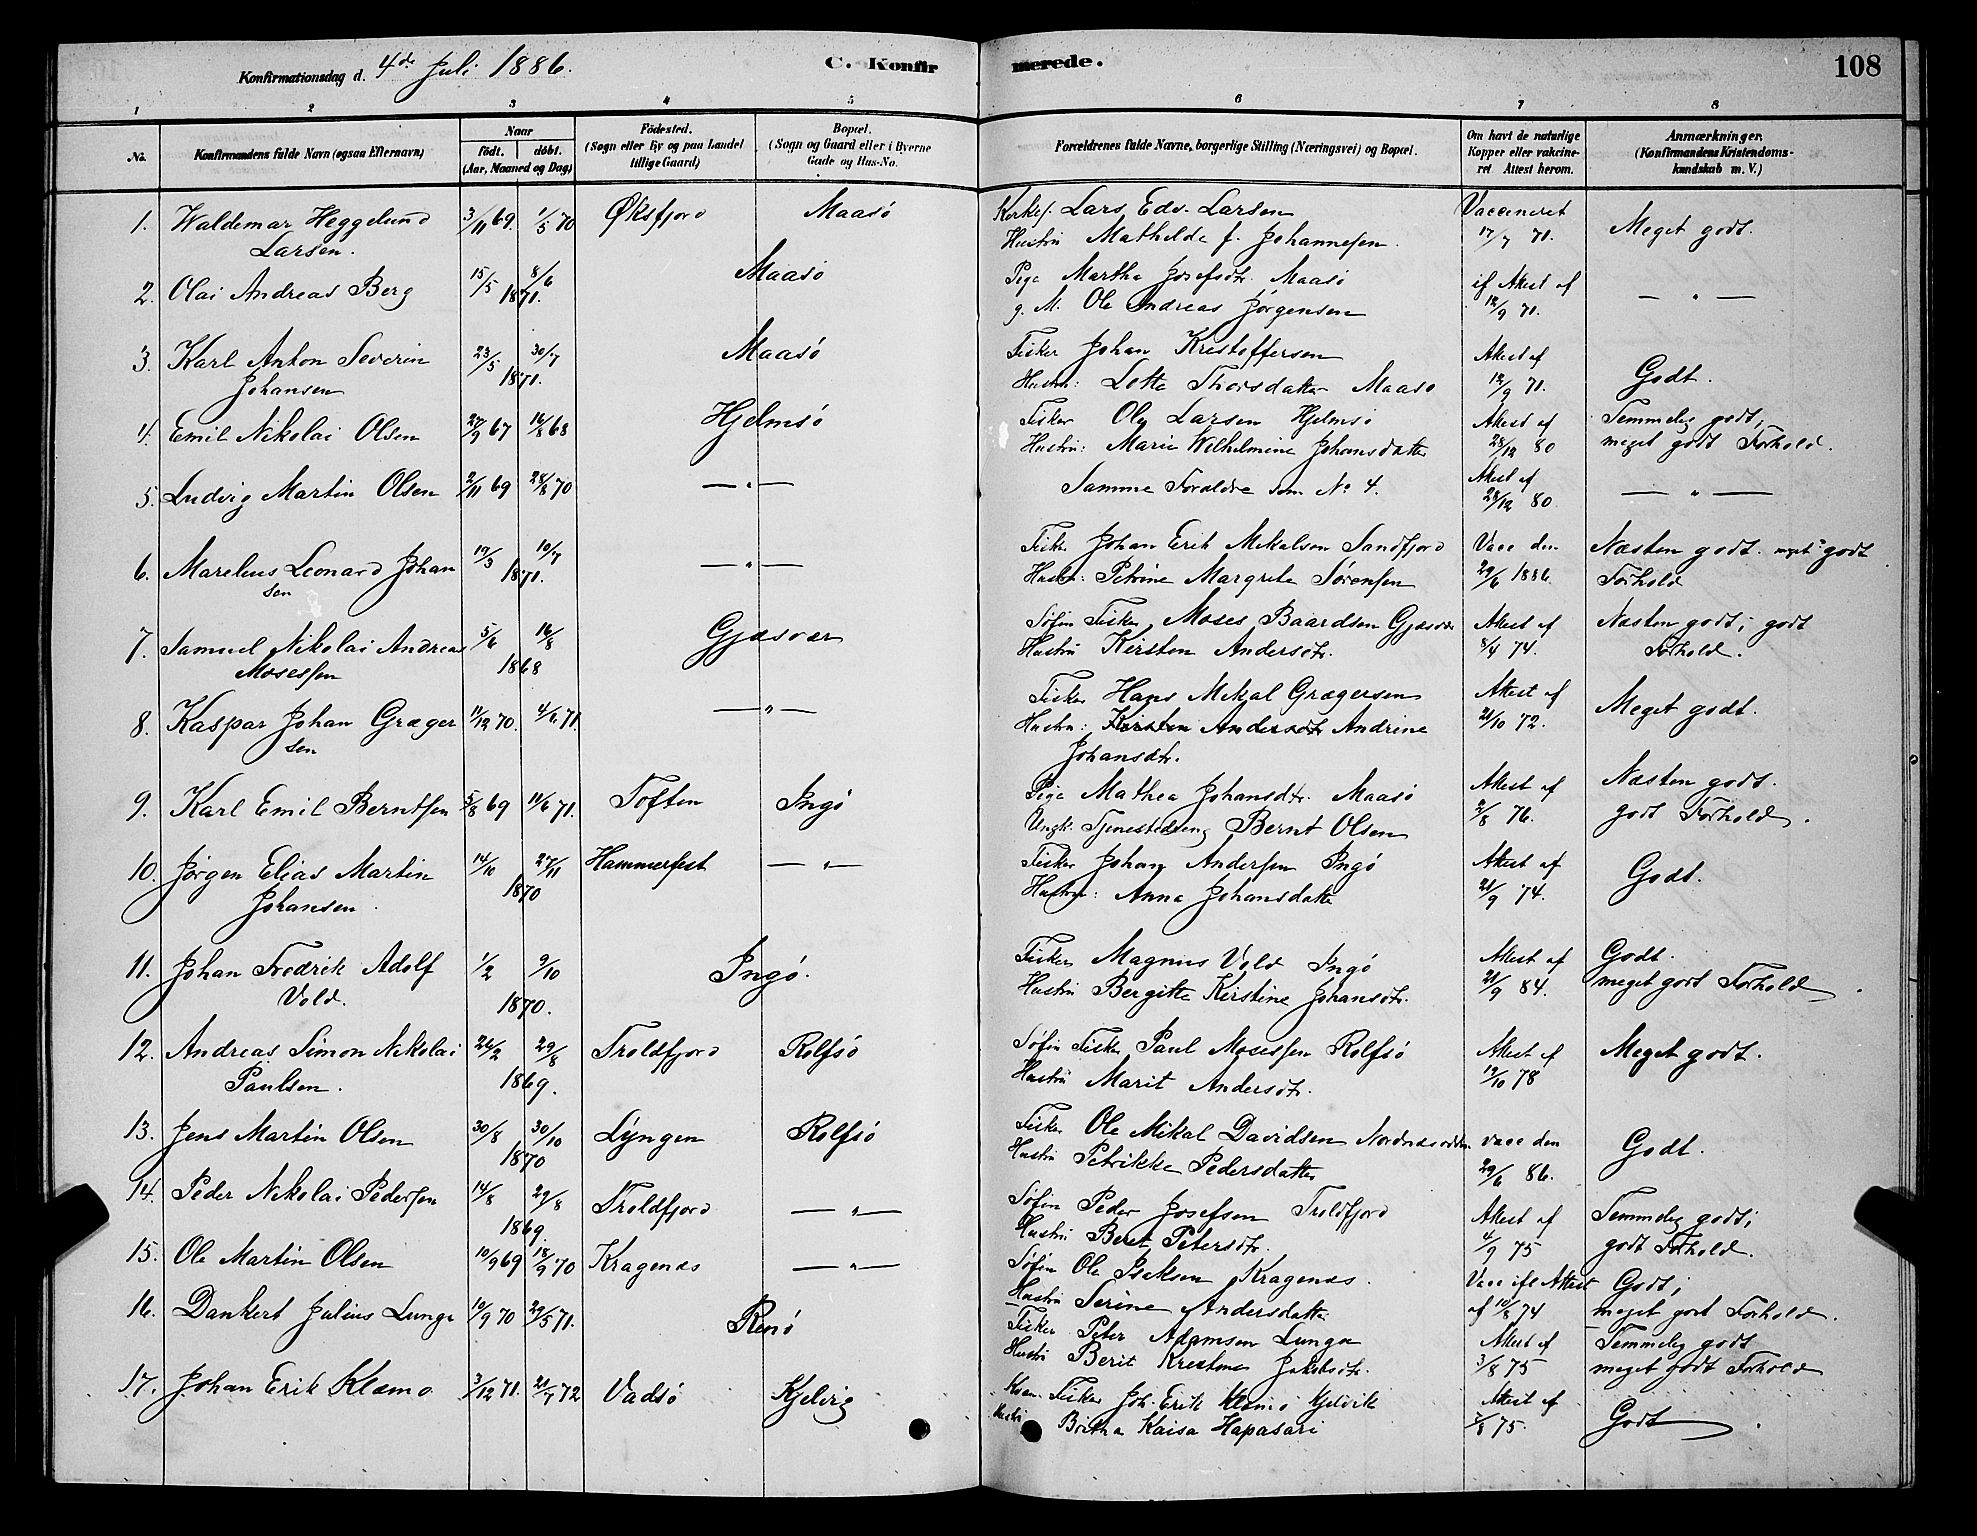 Konfirmationsdag d. 4de Juli 1886.
C. Konfirmerede.
108
1 2 3 4 5 6 7 8
No.
Konfirmandens fulde Navn (ogsaa Efternavn)
Naar
födt. döbt.
(Aar, Maaned og Dag)
Födested.
(Sogn eller By og paa Landet
tillige Gaard)
Bopæl.
(Sogn og Gaard eller i Byerne
Gade og Hus-No.
Forældrenes fulde Navne, borgerlige Stilling (Næringsvei) og Bopæl.
Om havt de naturlige
Kopper eller vakcine-
ret Attest herom.
Anmærkninger.
(Konfirmandens Kristendoms-
kundskab m. V.)
1. Waldemar Heggelund 3/11 69. 1/5 70 Øksfjord Maasö Lars Edv. Larsen Vaccineret
Larsen. Hustru Mathilde f. Johannesen. 17/7 71. Meget godt.
2. Olai Andreas Berg 15/5 8/6 1871. Maasö Pige Martha Josefsdtr. Maasö if Attest af
g. M. Ole Andreas Jørgensen 12/9 71. — " —
3. Karl Anton Severin 23/5 30/7 1871. Maasö Fisker Johan Kristoffersen Attest af
Johansen Hustru: Lotte Thorsdatter Maasö 12/9 71. Godt.
4. Emil Nikolai Olsen 27/9 67 16/8 68 Hjelmsö Fisker Ole Larsen Hjelmsö Attest af Temmelig godt;
Hustru: Marie Wilhelmine Johansdatter 28/12 80 meget godt Forhold.
5. Ludvig Martin Olsen 2/11 69 28/8 70 — " — Samme Forældre som No 4. Attest af
28/12 80. — " —
6. Marelius Leonard Johan 19/3 10/7 1871. — " — Fisker Johan Erik Mikalsen Sandfjord Vacc den Næsten godt. meget godt
sen Hustr: Petrine Margrete Sörensen 29/6 1886. Forhold
7. Samuel Nikolai Andreas 5/6 16/8 1868 Gjæsvær Söfin Fisker Moses Baardsen Gjæsvær Attest af Næsten godt; godt
Mosessen Hustru Kirsten Andersdtr. 8/4 74. Forhold.
8. Kaspar Johan Græger 11/12 70. 4/6 71. — " — Fisker Hans Mikal Grægersen Attest af
sen Hustru: Kirsten Andersdtr Andrine 21/10 72. Meget godt.
Johansdtr.
9. Karl Emil Berntsen 5/8 69 11/6 71. Toften Ingö Pige Mathea Johansdtr. Maasö Attest af Næsten godt.
Ungk. Tjenestedreng Bernt Olsen 2/8 76. godt Forhold.
10. Jørgen Elias Martin 14/10 27/11 1870 Hammerfest — " — Fisker Johan Andersen Ingö Attest af
Johansen. Hustru: Anna Johansdatter 21/9 74. Godt.
11. Johan Fredrik Adolf 1/2 9/10 1870. Ingö. Fisker Magnus Vold Ingö Attest af Godt.
Vold. Hustru Bergitte Kirstine Johansdtr. 21/9 84. meget godt Forhold
12. Andreas Simon Nikolai 24/2 29/8 1869. Troldfjord Rolfsö Söfin Fisker Paul Mosessen Rolfsö Attest af Meget godt.
Paulsen. Hustru Marit Andersdtr. 19/10 78
13. Jens Martin Olsen 30/8 30/10 1870 Lyngen Rolfsö Fisker Ole Mikal Davidsen vacc den
Hustru Petrikke Pedersdatter 29/6 86. Godt.
14. Peder Nikolai Pedersen 14/8 29/8 1869. Troldfjord — " — Söfin Peder Josefsen Troldfjord Attest af Temmelig godt;
Hustru Beret Petersdtr. 4/9 75 godt Forhold.
15. Ole Martin Olsen 10/9 69 18/9 70 Kragenæs — " — Söfin Ole Isaksen Kragenæs. Vacc ifl Attest Godt;
Hustru Serine Andersdatter af 10/8 74 meget godt Forhold.
16. Dankert Julius Lunge 19/9 70 29/5 71. Renö Fisker Peter Adamsen Lunge Attest af Temmelig godt
Hustru Berit Jakobsdtr. 3/8 75 meget godt Forhold
17. Johan Erik Klemo 3/12 71. 21/7 72 Vadsö Kjelvig Fisker Joh. Erik Klemo Kjelvik Attest af
Hustru Britha Kaisa Hapasari 2/8 75. Godt